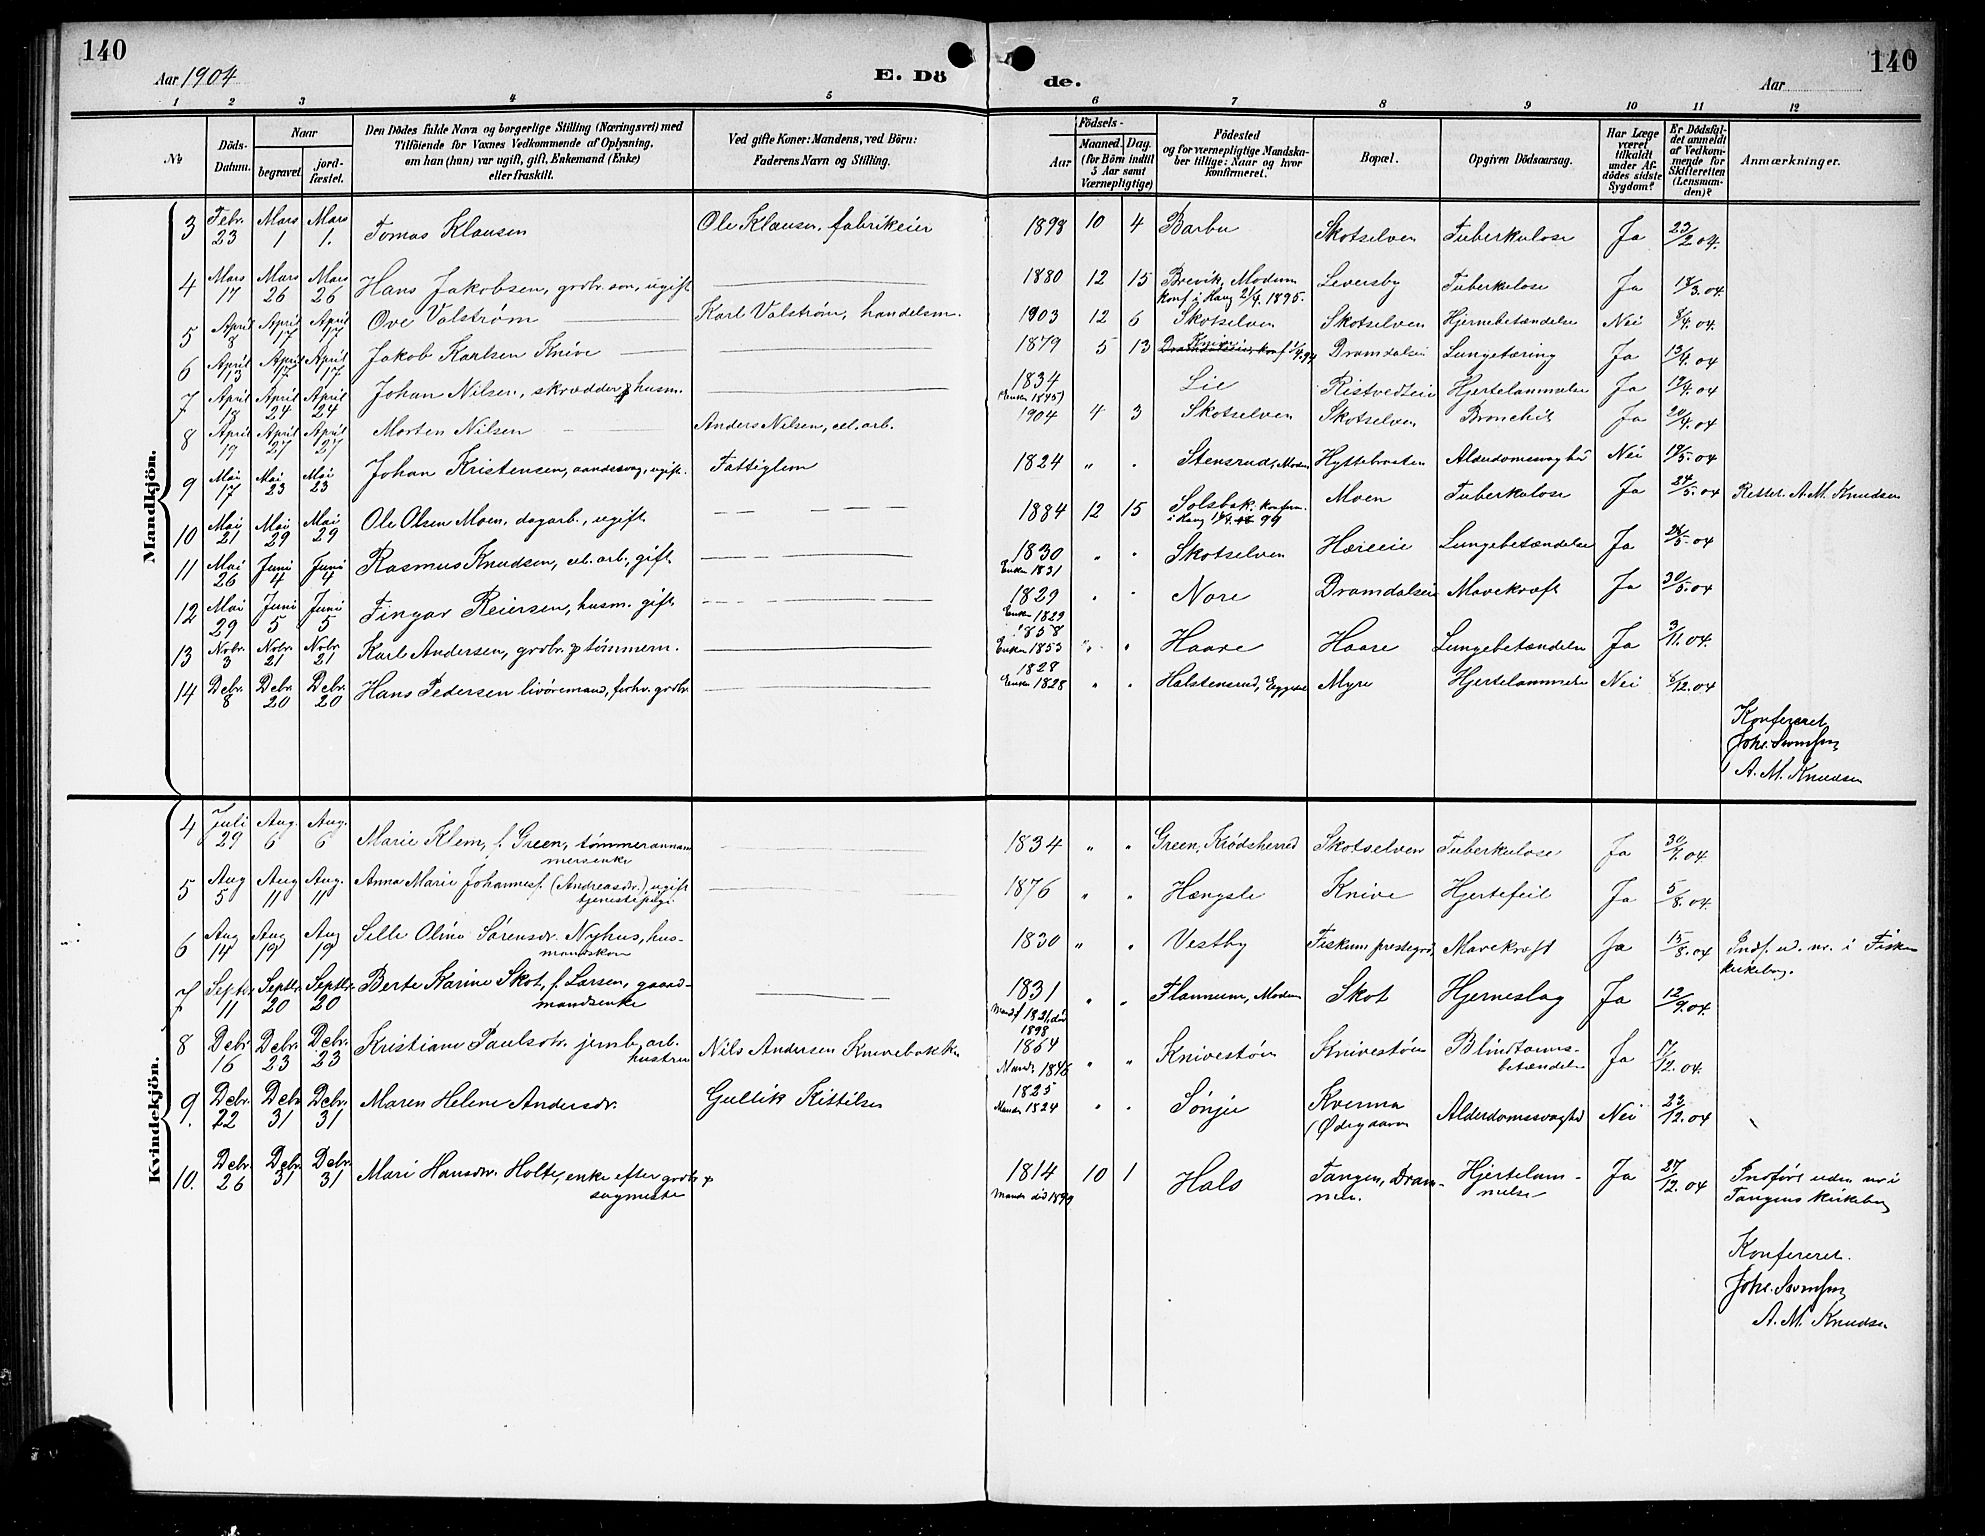 140
140
Aar 1904
E. Dö
de.
Aar
1 2 3 4 5 6 7 8 9 10 11 12
№
Döds-Datum.
Naar
begravet.
jord-fæstet.
Den Dödes fulde Navn og borgerlige Stilling (Næringsvei) med
Tilföiende for Voxnes Vedkommende af Oplysning,
om han (hun) var ugift, gift, Enkemand (Enke)
eller fraskilt.
Ved gifte Koner: Mandens, ved Börn:
Faderens Navn og Stilling.
Födsels-
Aar
Maaned. Dag.
(for Börn indtil
5 Aar samt
Værnepligtige)
Födested
og for værnepligtige Mandska-
ber tillige: Naar og hvor
konfirmeret.
Bopæl.
Opgiven Dödsaarsag.
Har Læge
været
tilkaldt
under Af-
dödes sidste
Sygdom?
Er Dödsfal-
det anmeldt
af Vedkom-
mende for
Skifteretten
(Lensman-
den)?
Anmærkninger.
Mandkjön.
3 Febr. 23 Mars 1 Mars 1. Tomas Klausen Ole Klausen, fabrikeier 1898 10 4 Barbu Skotselven Tuberkulose Ja 23/2 04.
4 Mars 17 Mars 26 Mars 26 Hans Jakobsen, grdbr. søn, ugift 1880 12 15 Brevik, Modum Leversby Tuberkulose Ja 18/3 04.
konf i Haug 21/4. 1895.
5 April 8 April 17 April 17 Ove Valstrøm Karl Valstrøm, handelsm. 1903 12 6 Skotselven Skotselven Hjernebetændelse Nei 8/4 04.
6 April 13 April 17 April 17 Jakob Karlsen Knive 1879 5 13 Knive Dramdalsei Lungetæring Ja 13/4 04
7 April 18 April 24 April 24 Johan Nilsen, skrædder & husm. 1834 Lie Ristvedteie Hjertelammelse Ja 19/4 04
(Enken 1845)
8 April 19 April 27 April 27 Morten Nilsen Anders Nilsen, cel. arb. 1904 4 3 Skotselven Skotselven Bronchit Ja 20/4 04
9 Mai 17 Mai 23 Mai 23 Johan Kristensen, aandssvag, ugift. Fattiglem 1824 " " Stensrud, Modum Hyttebraaten Alderdomssvaghed Nei 18/5. 04
10 Mai 21 Mai 29 Mai 29 Ole Olsen Moen, dagarb., ugift 1884 12 15 Solsbak. konfirm. Moen Tuberkulose Ja 24/5. 04 Rettet. A. M. Knudsen
i Haug 99
11 Mai 26 Juni 4 Juni 4 Rasmus Knudsen, cel. arb, gift 1830 " " Skotselven Hæreie Lungebetændelse Ja 28/5. 04
Enken 1831
12 Mai 29 Juni 5 Juni 5 Fingar Reiersen, husm. gift 1829 " " Nore Dramdalseie Mavekræft Ja 30/5. 04
Enken 1829
13 Nobr. 3 Nobr. 21 Nobr. 21 Karl Andersen, grdbr. & tømmerm. 1858 " " Haare Haare Lungebetændelse Ja 3/11. 04.
Enken 1853
14 Debr. 8 Debr. 20 Debr. 20 Hans Pedersen livøremand, forhv. grdbr 1828 " " Halstensrud, Eggedal Myre Hjertelammelse Nei 8/12. 04
Enken 1828
Konfereret
A. M. Knudsen
Kvindekjön.
4 Juli 29 Aug. 6 Aug. 6 Marie Klem, f. Green, tømmermandsenke 1834 " " Green, Krødsherred Skotselven Tuberkulose Ja 30/7. 04
5 Aug 5 Aug 11 Aug. 11 Anna Marie Johannesf. (Andreasdr.), ugift 1876 " " Hængsle Knive Hjertefeil Ja 5/8. 04.
tjenestepige.
6 Aug 14 Aug 19 Aug 19 Sille Oline Sørensdr. Nyhus, hus- 1830 " " Vestby Fiskum prestegrd, Mavekræft Ja 15/8. 04 Indf. ud. nr. i Fiskum
mandskone kirkebog.
7 Septbr. 11 Septbr. 20 Septbr. 20 Berte Karine Skot, f. Larsen, gaard- 1831 " " Flannum, Modum Skot Hjerneslag Ja 12/9. 04.
mandsenke Mand f 1821, död 1898
8 Debr 16 Debr. 23 Debr. 23 Kristiane Paulsdr. jernb. arb. Nils Andersen Knivebakken 1864 " " Knivestøen Knivestøen Blindtarms- Ja 17/12. 04.
hustru Manden 1846 betændelse
9. Debr. 22 Debr 31 Debr. 31 Maren Helene Andersdr. Gullik Kittilsen 1825 " " Sønju Kverma Alderdomssvaghed Nei 23/12. 04
Manden 1824 (Ødegaarn
10. Debr. 26 Debr. 31 Debr. 31 Mari Hansdr. Holte, enke efter grdbr & 1814 10 1 Hals Tangen, Dram- Hjertelam- Ja 27/12. 04 Indført uden nr i
sagmester Manden död 1890 men. melse Tangens kirkebog
Konfereret.
A. M. Knudsen